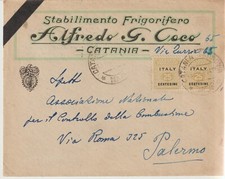 Stabilimento Frigorifero
Alfredo G. Coco
- CATANIA -
ITALY ITALY
CENTESIMI CENTESIMI
Spett
Associazione Nazionale
per il Controllo della Combustione
Via Roma 325
Palermo